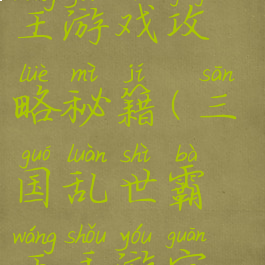 王游戏攻
lüè mì jí sān
略秘籍(三
guó luàn shì bà
国乱世霸
wáng shǒu yóu guān
王手游官